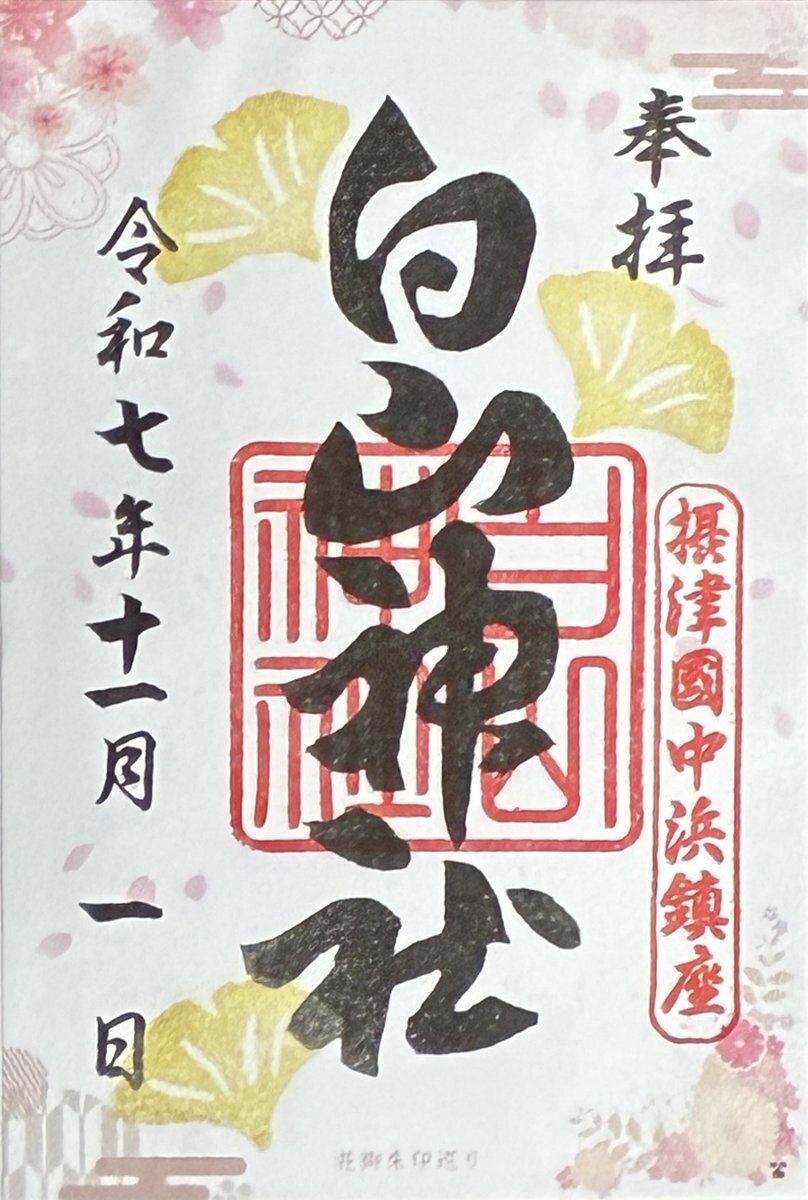 奉拝
摂津國中浜鎮座
白山神社
白山神社
令和七年十一月一日
花御朱印巡り